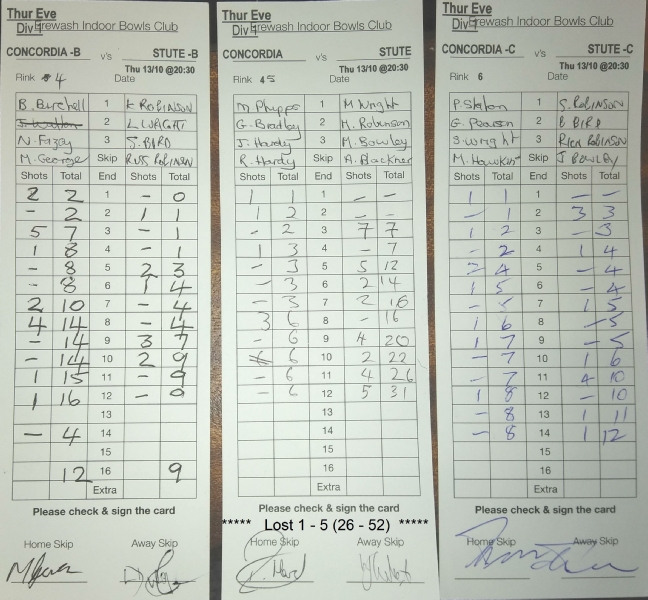 Thur Eve
Div 1 Erewash Indoor Bowls Club
CONCORDIA -B v's STUTE -B
Thu 13/10 @20:30
Rink 4 Date
B. Burchell 1 K ROBINSON
2 L WRIGHT
N. Fazey 3 S. BIRD
M. George Skip RUSS ROBINSON
Shots Total End Shots Total
2 2 1 - 0
- 2 2 1 1
5 7 3 - 1
1 8 4 - 1
- 8 5 2 3
- 8 6 1 4
2 10 7 - 4
4 14 8 - 4
- 14 9 3 7
- 14 10 2 9
1 15 11 - 9
1 16 12 - 9
13
- 4 14
15
12 16 9
Extra
Please check & sign the card
Home Skip Away Skip
Thur Eve
Div 1 Erewash Indoor Bowls Club
CONCORDIA v's STUTE
Thu 13/10 @20:30
Rink 5 Date
M Phipps 1 M Wright
G. Bradley 2 M. Robinson
J. Hardy 3 M. Bowley
R. Hardy Skip A. Blackner
Shots Total End Shots Total
1 1 1 - -
1 2 2 - -
- 2 3 7 7
1 3 4 - 7
- 3 5 5 12
- 3 6 2 14
- 3 7 2 16
3 6 8 - 16
- 6 9 4 20
6 10 2 22
- 6 11 4 26
- 6 12 5 31
13
14
15
16
Extra
Please check & sign the card
***** Lost 1 - 5 (26 - 52) *****
Home Skip Away Skip
Thur Eve
Div 1 Erewash Indoor Bowls Club
CONCORDIA -C v's STUTE -C
Thu 13/10 @20:30
Rink 6 Date
P. 1 S. ROBINSON
G. Pearson 2 B BIRD
S. Wright 3 RICH ROBINSON
M. Hawkins Skip J BOWLEY
Shots Total End Shots Total
1 1 1 - -
- 1 2 3 3
1 2 3 - 3
- 2 4 1 4
2 4 5 - 4
1 5 6 - 4
- 5 7 1 5
1 6 8 - 5
1 7 9 - 5
- 7 10 1 6
- 7 11 4 10
1 8 12 - 10
- 8 13 1 11
- 8 14 1 12
15
16
Extra
Please check & sign the card
Home Skip Away Skip